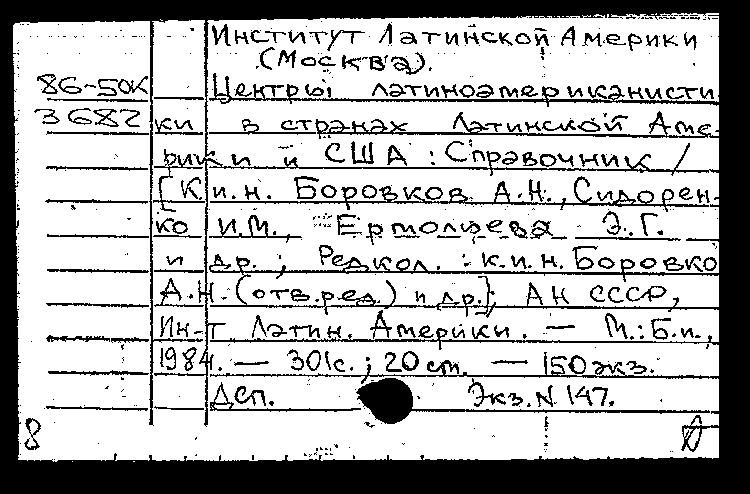 Институт Латинской Америки
(Москва).
86-50К Центры латиноамериканисти
3682 ки в странах Латинской Аме-
рики и США : Справочник /
[К.и.н. Боровков А.Н., Сидорен-
ко И.М., Ермолаева Э.Г.
и др. ; Редкол. : к.и.н. Боровко
А.Н. (отв.ред.) и др.]; АН СССР,
Ин-т Латин. Америки. — М.: Б.и.,
1984. — 301с. ; 20 см. — 150 экз.
ДСП. Экз.N 147.
8